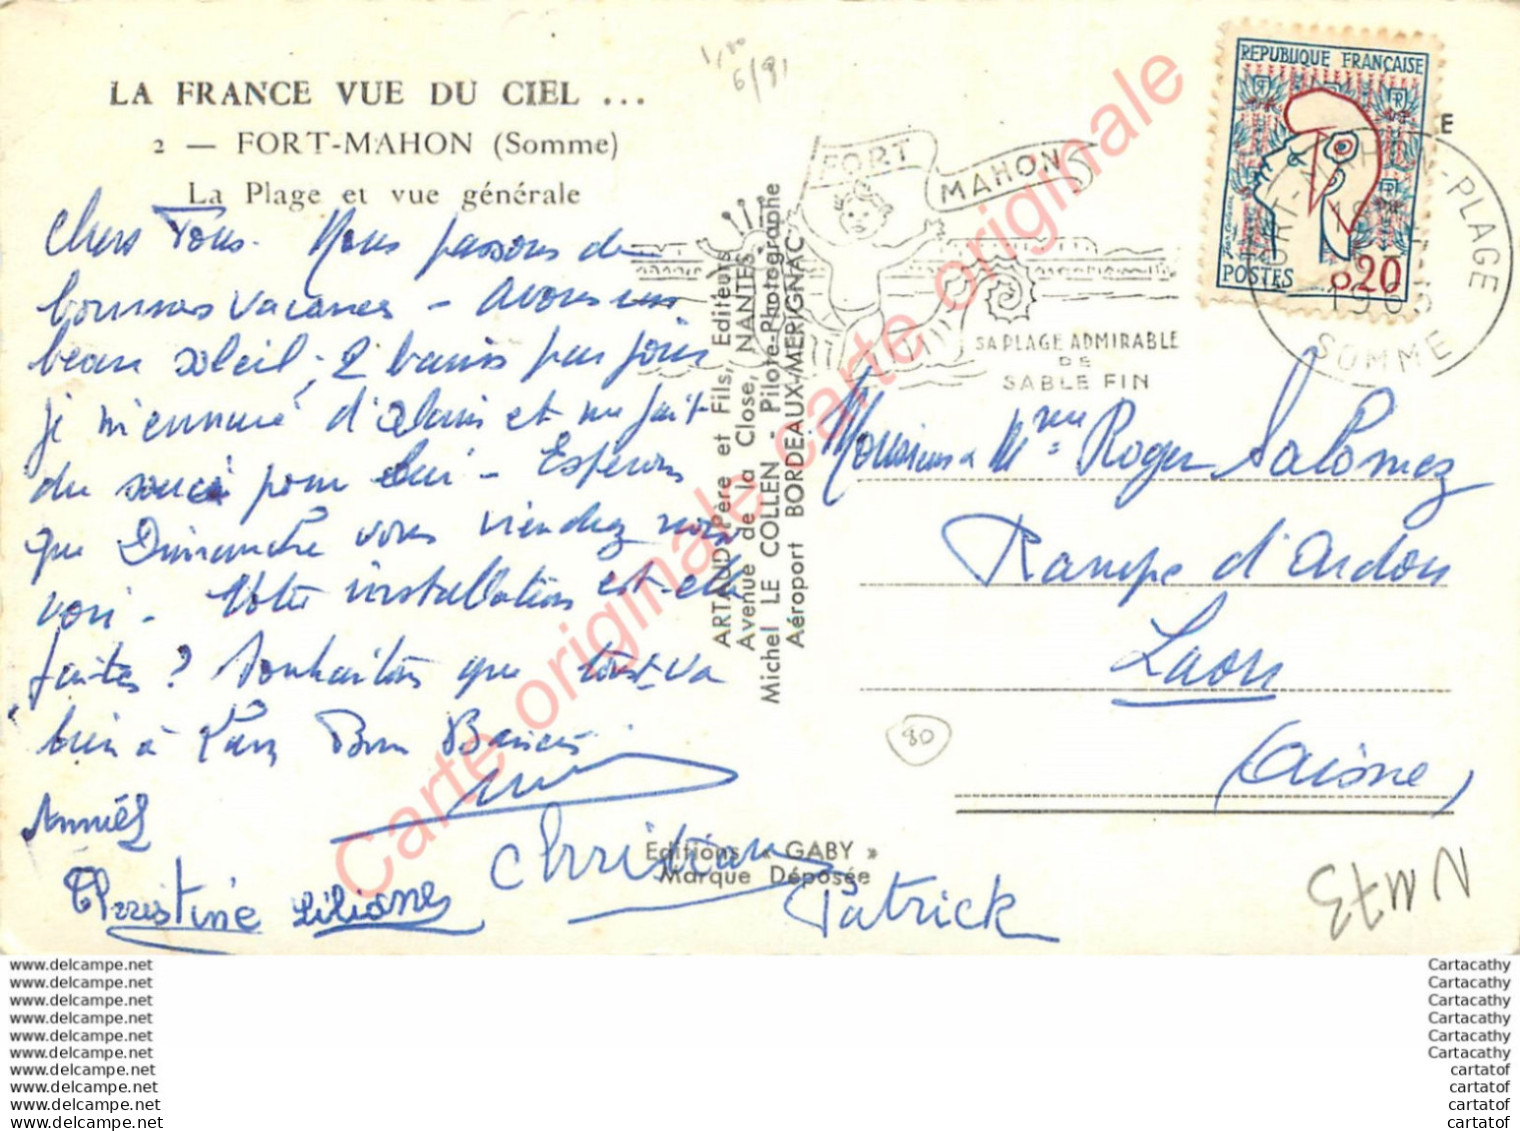 LA FRANCE VUE DU CIEL ...
2 — FORT-MAHON (Somme)
La Plage et vue générale
Chers Vous. Nous passons de
bonnes vacances - avons un
beau soleil, 2 bains par jour
je m'ennuie d'Alain et me fait
du souci pour lui - Espérons
que Dimanche vous viendrez nous
voir. Votre installation est-elle
faites? Souhaitons que tout va
bien à Laon Bon Baisers
Annie
Christine Liliane
Christian
Patrick
1,00
6/81
ARTAUD Père et Fils, Editeurs
Avenue de la Close, NANTES
Michel LE COLLEN - Pilote-Photographe
Aéroport BORDEAUX-MERIGNAC
Editions « GABY »
Marque Déposée
FORT MAHON
SA PLAGE ADMIRABLE
DE
SABLE FIN
REPUBLIQUE FRANÇAISE
POSTES
0,20
FORT-MAHON-PLAGE
SOMME
E
Monsieur & Mme Roger Salomez
Rampe d'Ardon
Laon
(Aisne)
80
NM73
Carte originale carte originale carte originale
www.delcampe.net
www.delcampe.net
www.delcampe.net
www.delcampe.net
www.delcampe.net
www.delcampe.net
www.delcampe.net
www.delcampe.net
www.delcampe.net
www.delcampe.net
Cartacathy
Cartacathy
Cartacathy
Cartacathy
Cartacathy
Cartacathy
cartatof
cartatof
cartatof
cartatof